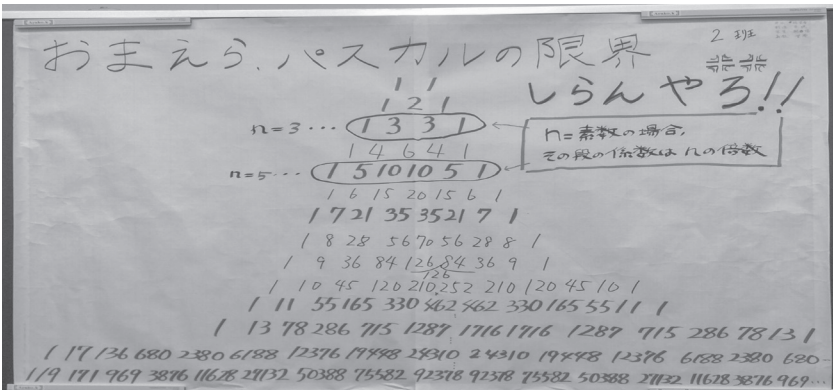 おまえら、パスカルの限界
2 班
しらんやろ!!
1 1
1 2 1
n=3… 1 3 3 1
n=素数の場合、
その段の係数はnの倍数
1 4 6 4 1
n=5… 1 5 10 10 5 1
1 6 15 20 15 6 1
1 7 21 35 35 21 7 1
1 8 28 56 70 56 28 8 1
1 9 36 84 126 84 36 9 1
126
1 10 45 120 210 252 210 120 45 10 1
1 11 55 165 330 462 462 330 165 55 11 1
1 13 78 286 715 1287 1716 1716 1287 715 286 78 13 1
1 17 136 680 2380 6188 12376 19448 24310 24310 19448 12376 6188 2380 680
1 19 171 969 3876 11628 27132 50388 75582 92378 92378 75582 50388 27132 11628 3876 969